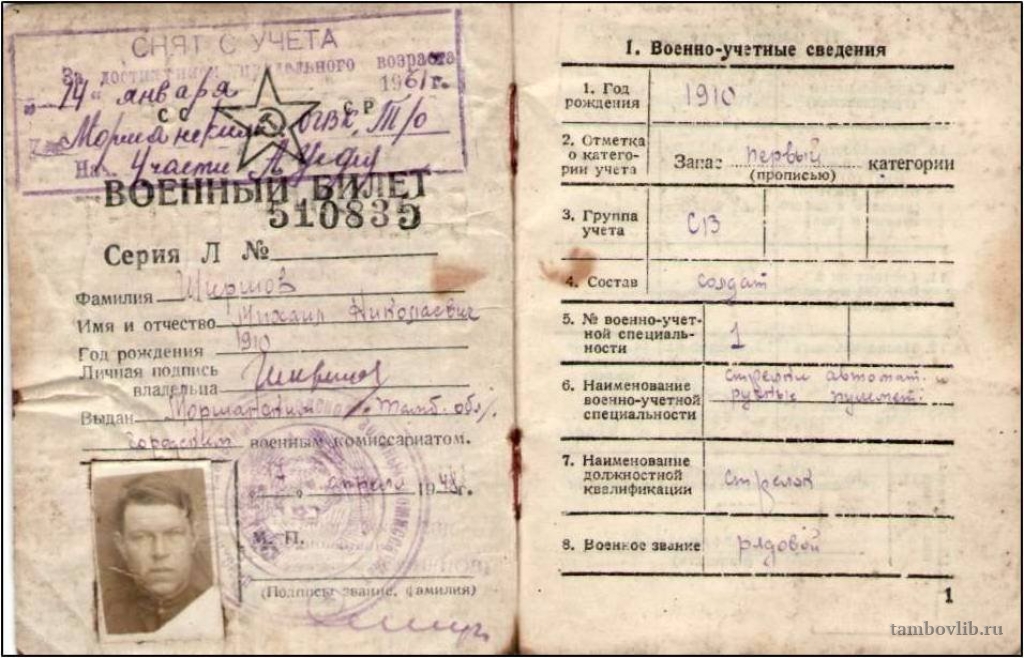 СНЯТ С УЧЕТА
За достижением предельного возраста
"14" января 1961г.
СС СР
Моршанским ОГВК, Т/о
На
ВОЕННЫЙ БИЛЕТ
510835
Серия Л №
Фамилия Ширшов
Имя и отчество Михаил Николаевич
Год рождения 1910
Личная подпись
владельца Ширшов
Выдан Моршанским Тамб. обл.
городским военным комиссариатом.
апреля 1948г.
М. П.
(Подпись, звание, фамилия)
1. Военно-учетные сведения
1. Год рождения 1910
2. Отметка о категории учета Запас первый категории
(прописью)
3. Группа учета
4. Состав солдат
5. № военно-учет-
ной специаль-
ности 1
6. Наименование
военно-учетной
специальности стрелки автомат.
ручные пулемет.
7. Наименование
должностной
квалификации стрелок
8. Военное звание рядовой
1
tambovlib.ru